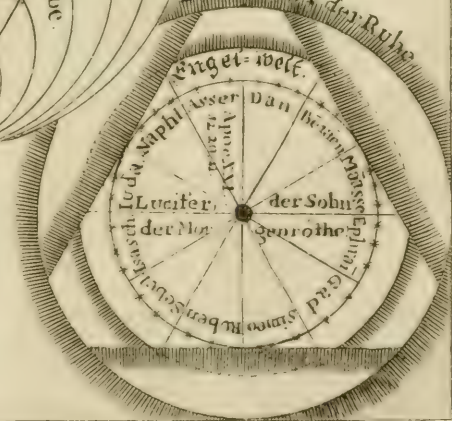 be.
der Ruhe
Engel=welt.
Asser Dan Benjam Manasse Ephrai Gad Simeo Ruben Sebul Isasch Juda Napht
Apoc. XXI
12.
Lucifer, der Sohn
der Morgenröthe